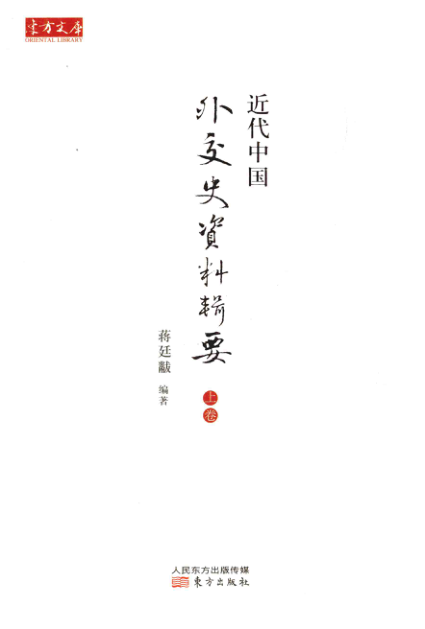 东方文库
ORIENTAL LIBRARY
近代中国
外交史資料輯要
上卷
蒋廷黻 编著
人民东方出版传媒
东方出版社